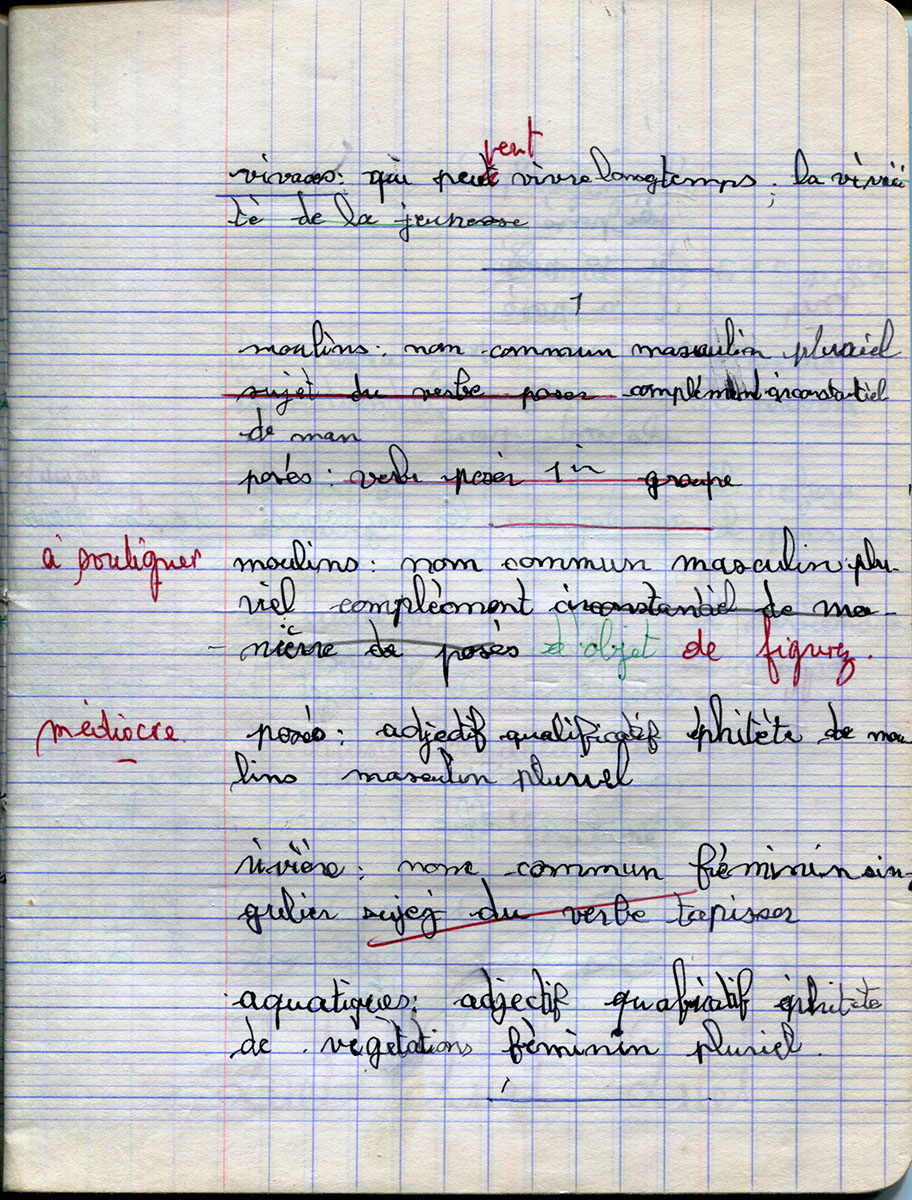 vent
vivaces : qui peut vivre longtemps ; la vivaci
té de la jeunesse
1
moulins : nom commun masculin pluriel
sujet du verbe poser complément circonstantiel
de man
posés : verbe poser 1er groupe
à souligner moulins : nom commun masculin plu-
riel complèoment circonstantiel de ma-
- nière de posés d'objet de figurez.
médiocre posés : adjedif qualificatif éphitète de mou
lins masculin pluriel
rivière : nom commun féminin sin-
gulier sujet du verbe tapisser
aquatiques : adjectif qualificatif éphitète
de végétations féminin pluriel.